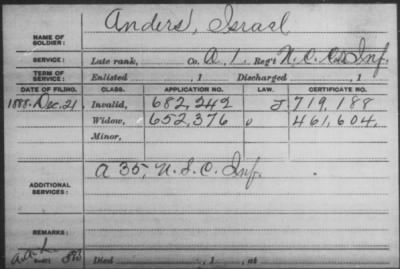 NAME OF SOLDIER: Anders, Israel
SERVICE: Late rank, Co. A. L. Reg't N.C. Inf.
TERM OF SERVICE: Enlisted , 1 Discharged , 1
DATE OF FILING. CLASS. APPLICATION NO. LAW. CERTIFICATE NO.
1888. Dec. 21 Invalid, 682,242 J 719,188
Widow, 652,376 " 461,604.
Minor,
ADDITIONAL SERVICES: A 35, U.S.C. Inf.
REMARKS:
Died , 1 , at